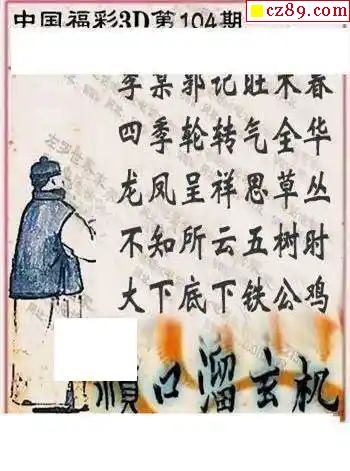 中国福彩3D第104期
cz89.com
郭记旺木春
四季轮转气全华
龙凤呈祥思草丛
不知所云五树时
大下底下铁公鸡
順口溜玄机